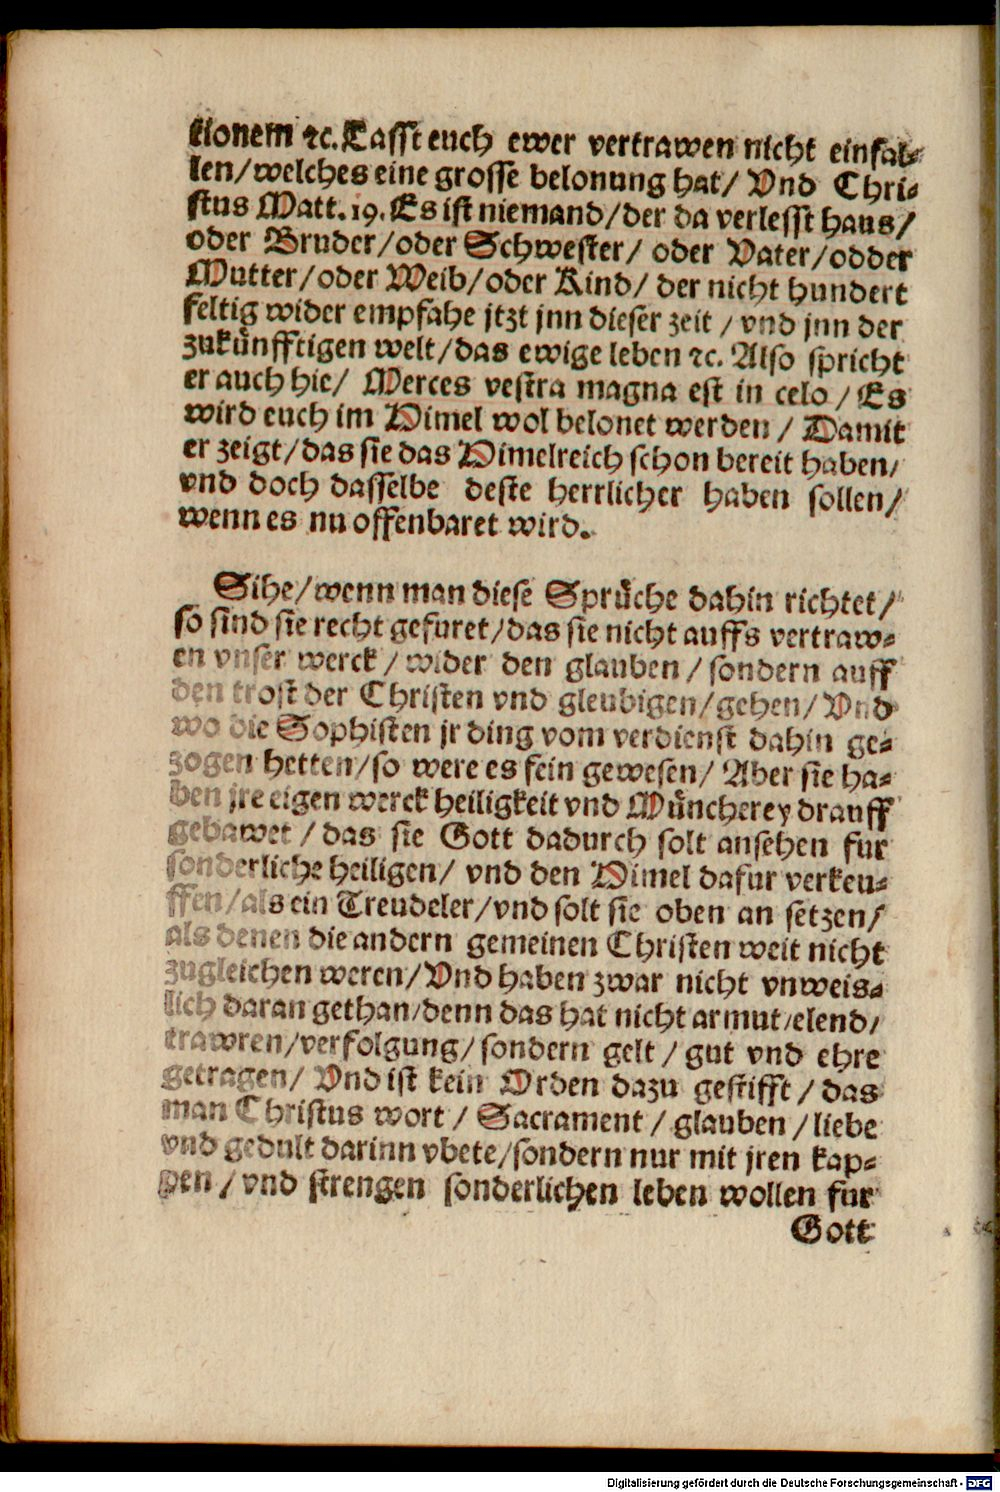 tionem ꝛc. Lasst euch ewer vertrawen nicht einfal-
len/welches eine grosse belonung hat/ Vnd Chri-
stus Matt. 19. Es ist niemand/der da verlesst haus/
oder Bruder/oder Schwester/ oder Vater/odder
Mutter/oder Weib/oder Kind/ der nicht hundert
feltig wider empfahe jtzt jnn dieser zeit / vnd jnn der
zukuͤnfftigen welt/das ewige leben ꝛc. Also spricht
er auch hie/ Merces vestra magna est in celo / Es
wird euch im Himel wol belonet werden / Damit
er zeigt/das sie das Himelreich schon bereit haben/
vnd doch dasselbe deste herrlicher haben sollen/
wenn es nu offenbaret wird.
Sihe/wenn man diese Spruͤche dahin richtet/
so sind sie recht gefuret/das sie nicht auffs vertraw-
en vnser werck / wider den glauben / sondern auff
den trost der Christen vnd gleubigen/gehen/ Vnd
wo die Sophisten jr ding vom verdienst dahin ge-
zogen hetten/so were es fein gewesen/ Aber sie ha-
ben jre eigen werck heiligkeit vnd Muͤncherey drauff
gebawet / das sie Gott dadurch solt ansehen fur
sonderliche heiligen/ vnd den Himel dafur verkeu-
ffen/als ein Treudeler/vnd solt sie oben an setzen/
als denen die andern gemeinen Christen weit nicht
zugleichen weren/ Vnd haben zwar nicht vnweis-
lich daran gethan/denn das hat nicht armut/elend/
trawren/verfolgung/ sondern gelt / gut vnd ehre
getragen/ Vnd ist kein Orden dazu gestifft / das
man Christus wort / Sacrament / glauben / liebe
vnd gedult darinn vbete/sondern nur mit jren kap-
pen / vnd strengen sonderlichen leben wollen fur
Gott
Digitalisierung gefördert durch die Deutsche Forschungsgemeinschaft - DFG